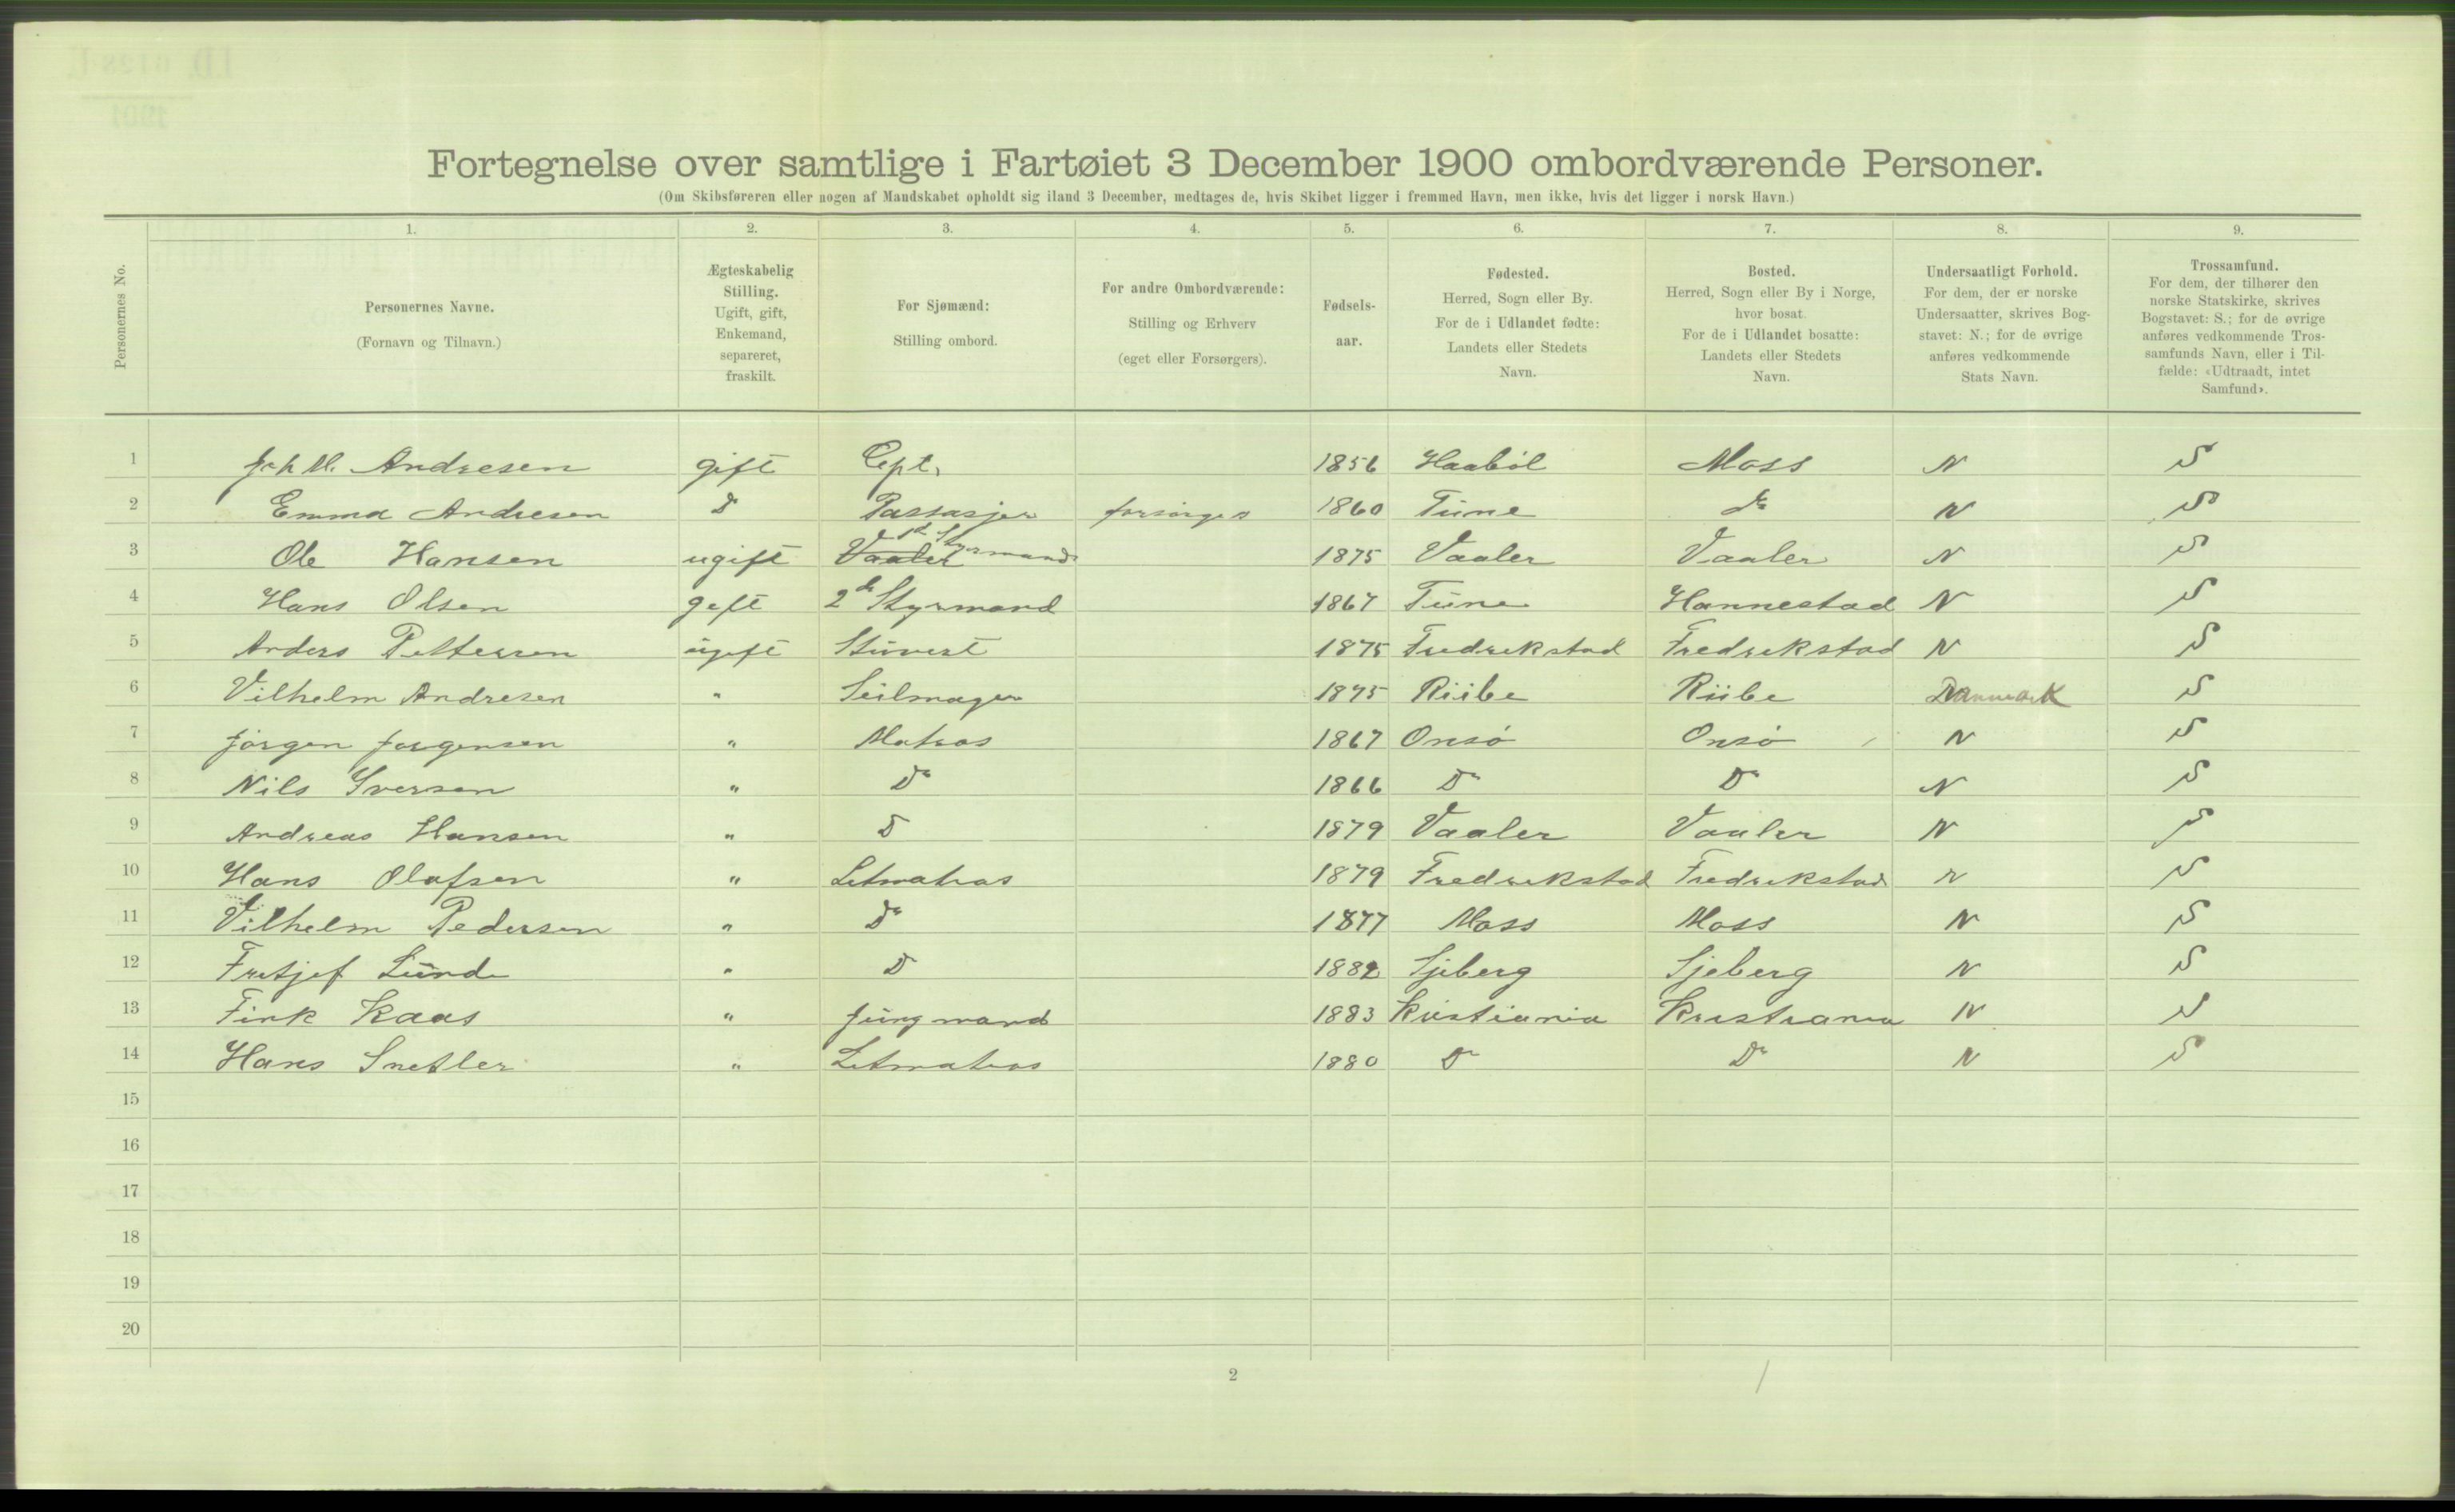 Fortegnelse over samtlige i Fartøiet 3 December 1900 ombordværende Personer.
(Om Skibsføreren eller nogen af Mandskabet opholdt sig iland 3 December, medtages de, hvis Skibet ligger i fremmed Havn, men ikke, hvis det ligger i norsk Havn.)
Personernes No.
1.
Personernes Navne.
(Fornavn og Tilnavn.)
2.
Ægteskabelig
Stilling.
Ugift, gift,
Enkemand,
separeret,
fraskilt.
3.
For Sjømænd:
Stilling ombord.
4.
For andre Ombordværende:
Stilling og Erhverv
(eget eller Forsørgers).
5.
Fødsels-
aar.
6.
Fødested.
Herred, Sogn eller By.
For de i Udlandet fødte:
Landets eller Stedets
Navn.
7.
Bosted.
Herred, Sogn eller By i Norge,
hvor bosat.
For de i Udlandet bosatte:
Landets eller Stedets
Navn.
8.
Undersaatligt Forhold.
For dem, der er norske
Undersaatter, skrives Bog-
stavet: N.; for de øvrige
anføres vedkommende
Stats Navn.
9.
Trossamfund.
For dem, der tilhører den
norske Statskirke, skrives
Bogstavet: S.; for de øvrige
anføres vedkommende Tros-
samfunds Navn, eller i Til-
fælde: «Udtraadt, intet
Samfund».
1 Joh M. Andresen gift Cept. 1856 Haaböl Moss N S
2 Emma Andresen D Passasjer forsörges 1860 Tune do N S
3 Ole Hansen ugift Vaaler 1st Styrmand 1875 Vaaler Vaaler N S
4 Hans Olsen gift 2de Styrmand 1867 Tune Hannestad N S
5 Anders Pettersen ugift Stuvert 1875 Fredrekstad Fredrekstad N S
6 Vilhelm Andresen " Seilmager 1875 Riibe Riibe Danmark S
7 Jörgen Jörgensen " Matros 1867 Onsö Onsö N S
8 Nils Iversen " Do 1866 Do Do N S
9 Andreas Hansen " D 1879 Vaaler Vaaler N S
10 Hans Olafsen " Letmatros 1879 Fredrekstad Fredrekstad N S
11 Vilhelm Pedersen " Do 1877 Moss Moss N S
12 Fretjef Lund " D 1882 Sjeberg Sjeberg N S
13 Fink Kaas " Jungmand 1883 Kristiania Kristiania N S
14 Hans Snetler " Letmatros 1880 Do Do N S
15
16
17
18
19
20
2